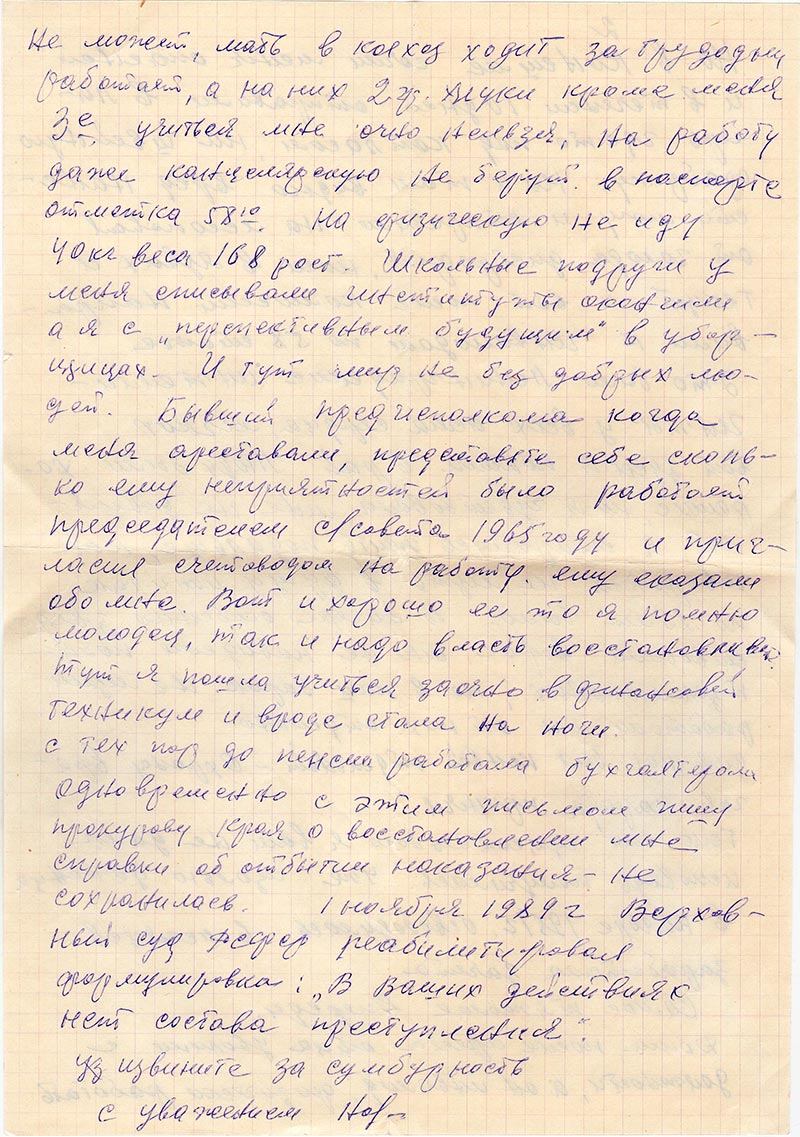 не может, мать в колхоз ходит за трудодни
работает, а на них 2 гр. муки кроме меня
3е учиться мне очно нельзя, на работу
даже канцелярскую не берут. в паспорте
отметка 58¹⁰. На физическую не иду
40 кг веса 168 рост. Школьные подруги у
меня списывали институты окончили
а я с „перспективным будущим" в убор-
щицах. И тут мир не без добрых лю-
дей. Бывший предисполкома когда
меня арестовали, представте себе сколь-
ко ему неприятностей было работает
председателем с/совета 1965 году и приг-
ласил счетоводом на работу. ему сказали
обо мне. Вот и хорошо ее то я помню
молодец, так и надо власть восстановливать.
тут я пошла учиться заочно в финансовый
техникум и вроде стала на ноги.
с тех пор до пенсии работала бухгалтером
одновременно с этим письмом пишу
прокурору края о восстановлении мне
справки об отбытии наказания - не
сохранилась. 1 ноября 1989 г Верхов-
ный суд РСФСР реабилитировал
формулировка: „В Ваших действиях
нет состава преступления".
уз извините за сумбурность
с уважением